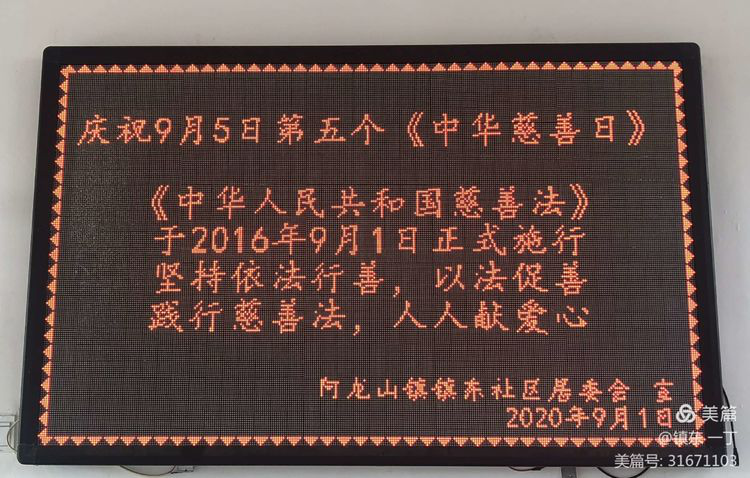 庆祝9月5日第五个《中华慈善日》
《中华人民共和国慈善法》
于2016年9月1日正式施行
坚持依法行善，以法促善
践行慈善法，人人献爱心
阿龙山镇镇东社区居委会 宣
2020年9月1日
美篇
@镇东一丁
美篇号: 31671103